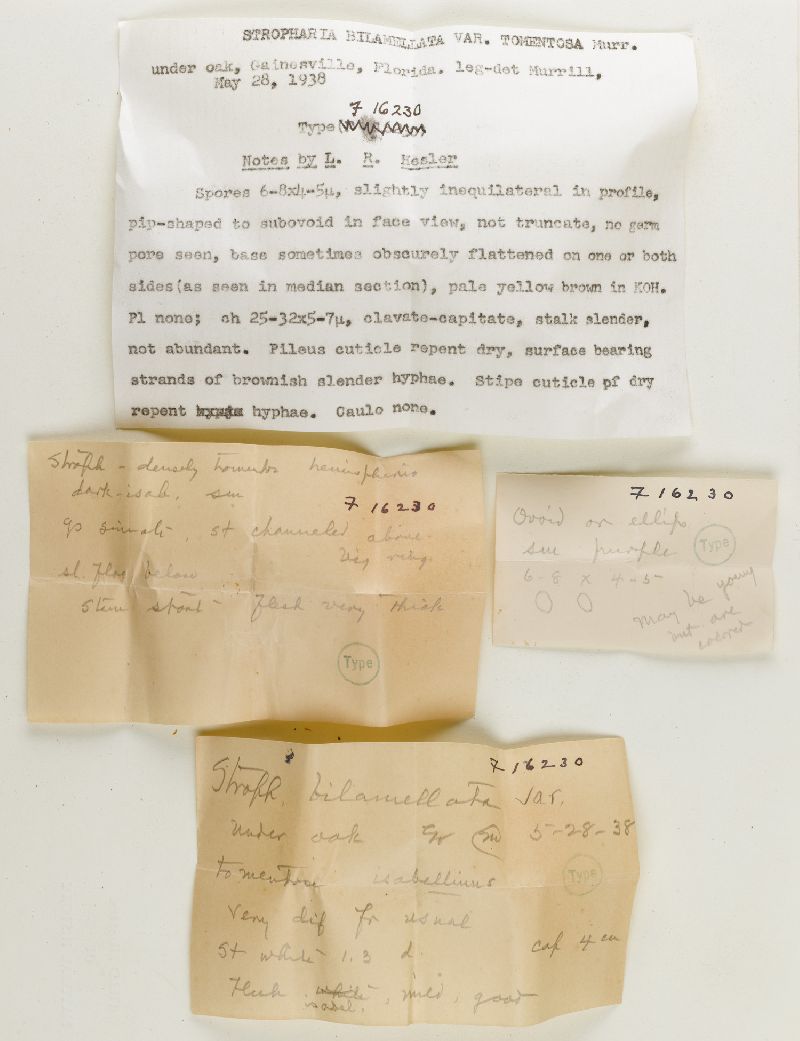 STROPHARIA BILAMELLATA VAR. TOMENTOSA Murr.
under oak, Gainesville, Florida. leg-det Murrill,
May 28, 1938
F 16230
Type
Notes by L. R. Hesler
Spores 6-8x4-5µ, slightly inequilateral in profile,
pip-shaped to subovoid in face view, not truncate, no germ
pore seen, base sometimes obscurely flattened on one or both
sides(as seen in median section), pale yellow brown in KOH.
Pl none; ch 25-32x5-7µ, clavate-capitate, stalk slender,
not abundant. Pileus cuticle repent dry, surface bearing
strands of brownish slender hyphae. Stipe cuticle of dry
repent hyphae. Caulo none.
Stroph - densely tomentos hemispheric
dark-isab. sm
F 16230
go sinuate, st channeled above
big ring
sl. floc below
Stem stout flesh very thick
Type
F 16230
Ovoid or ellip
sm purple
Type
6-8 x 4-5
may be young
but are
colored
F 16230
Stroph. bilamellata var.
Under oak Gr m 5-28-38
tomentose isabellinus
Type
Very dif fr usual
St white 1.3 d. cap 4 cm
Flesh white, mild, good
isabel.